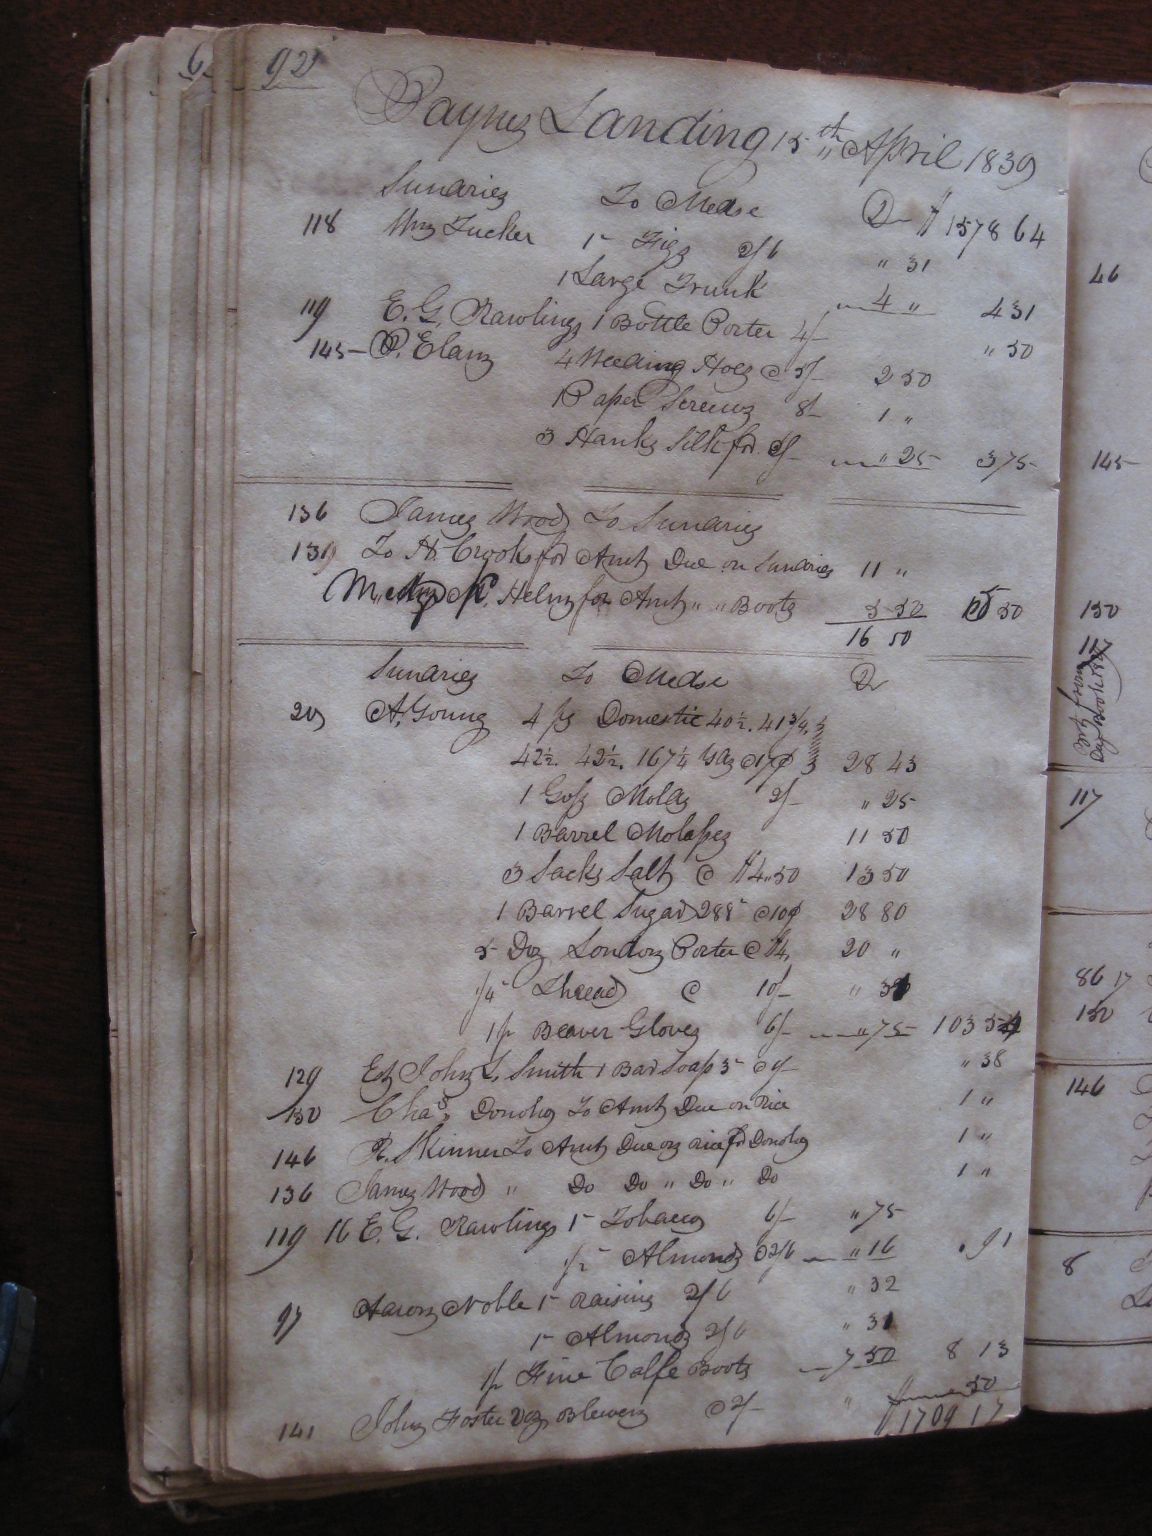 6
92
Paynes Landing 15th April 1839
Sunaries To Mdse Dr $ 1578 64
118 Wm Tucker 1 Figs 2/6 " 31
1 Large Trunk 4 " 4 31
119 E. G. Rawlings 1 Bottle Porter 4/- " 50
145 P. Elam 4 Weeding Hoes @ 5/- 2 50
1 Paper Screws 8/- 1 "
3 Hanks Silk for 2/- " 25 3 75
136 James Wood To Sunaries
139 To H. Crooks for Amt Due on Sunaries 11 "
Helm for Amt " " Boots 5 50 50
16 50
Sunaries To Mdse Dr
20 A. Young 4 ps Domestic 40½. 41¾.
42½. 42½. 167¼ yds @ 17¢ 28 43
1 Molas 2/- " 25
1 Barrel Molasses 11 50
3 Sacks Salt @ $4.50 13 50
1 Barrel Sugar 288 @ 10¢ 28 80
5 Doz London Porter @ $4. 20 "
¼ Thread @ 10/- " 31
1 p Beaver Gloves 6/- " 75 103 54
129 John L. Smith 1 Bar Soap 3 @ " 38
130 Chas. Donoho To Amt Due on Rice 1 "
146 R. Skinner To Amt Due on rice for Donoho 1 "
136 James Wood " Do Do " Do " Do 1 "
119 16 E. G. Rawlings 1 Tobacco 6/- " 75
½ Almonds @ 2/6 " 16 . 91
97 Aaron Noble 1 Raisins 2/6 " 32
1 Almonds 2/6 " 31
1 p Fine Calfe Boots 7 50 8 13
141 John Foster @ 2/- " 50
$ 1709 17
46
145
150
117
Day Book
117
86 17
150
146
8